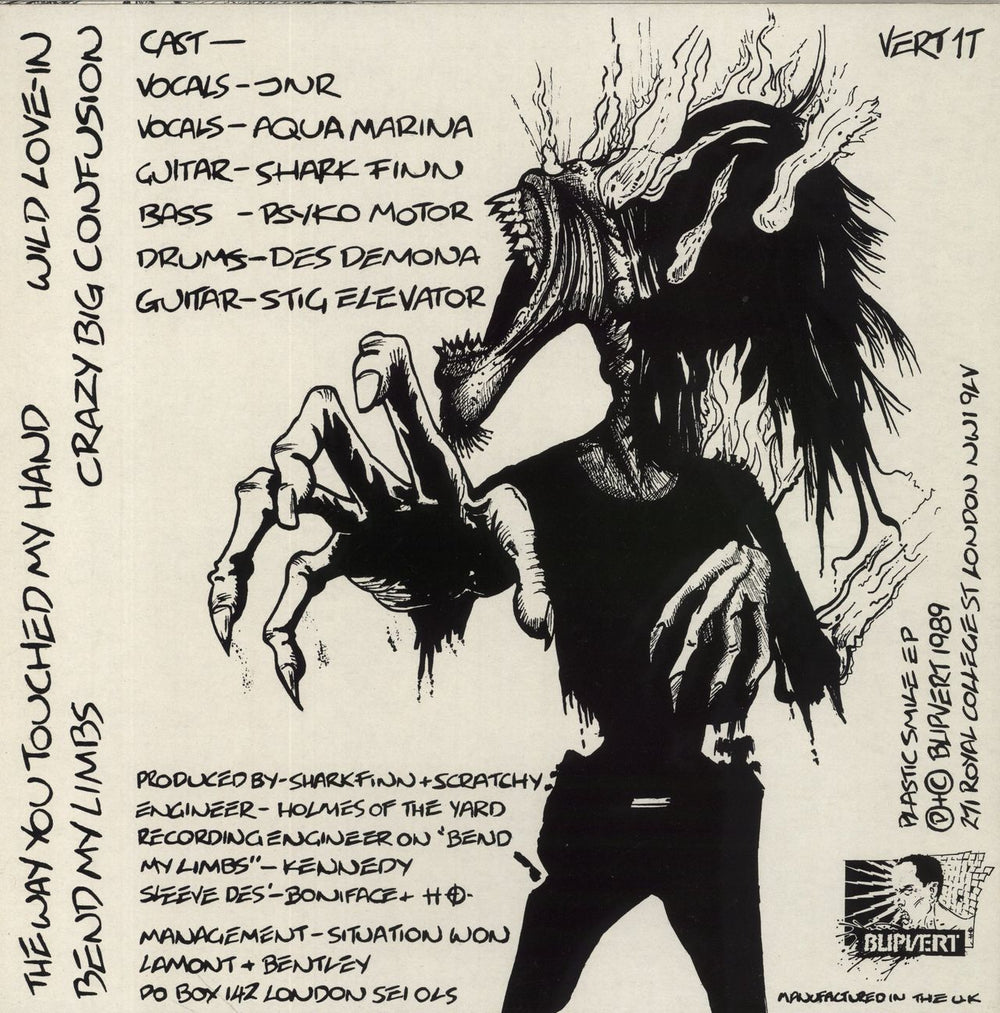 THE WAY YOU TOUCHED MY HAND
WILD LOVE-IN
BEND MY LIMBS
CRAZY BIG CONFUSION
CAST—
VOCALS-JNR
VOCALS-AQUA MARINA
GUITAR-SHARK FINN
BASS -PSYKO MOTOR
DRUMS-DES DEMONA
GUITAR-STIG ELEVATOR
VERT 1T
PRODUCED BY-SHARK FINN+SCRATCHY
ENGINEER- HOLMES OF THE YARD
RECORDING ENGINEER ON "BEND
MY LIMBS"- KENNEDY
SLEEVE DES'-BONIFACE+
MANAGEMENT-SITUATION WON
LAMONT + BENTLEY
PO BOX 142 LONDON SE1 OLS
PLASTIC SMILE EP
℗+© BLIPVERT 1989
271 ROYAL COLLEGE ST LONDON NW1 9LV
BLIPVERT
MANUFACTURED IN THE UK